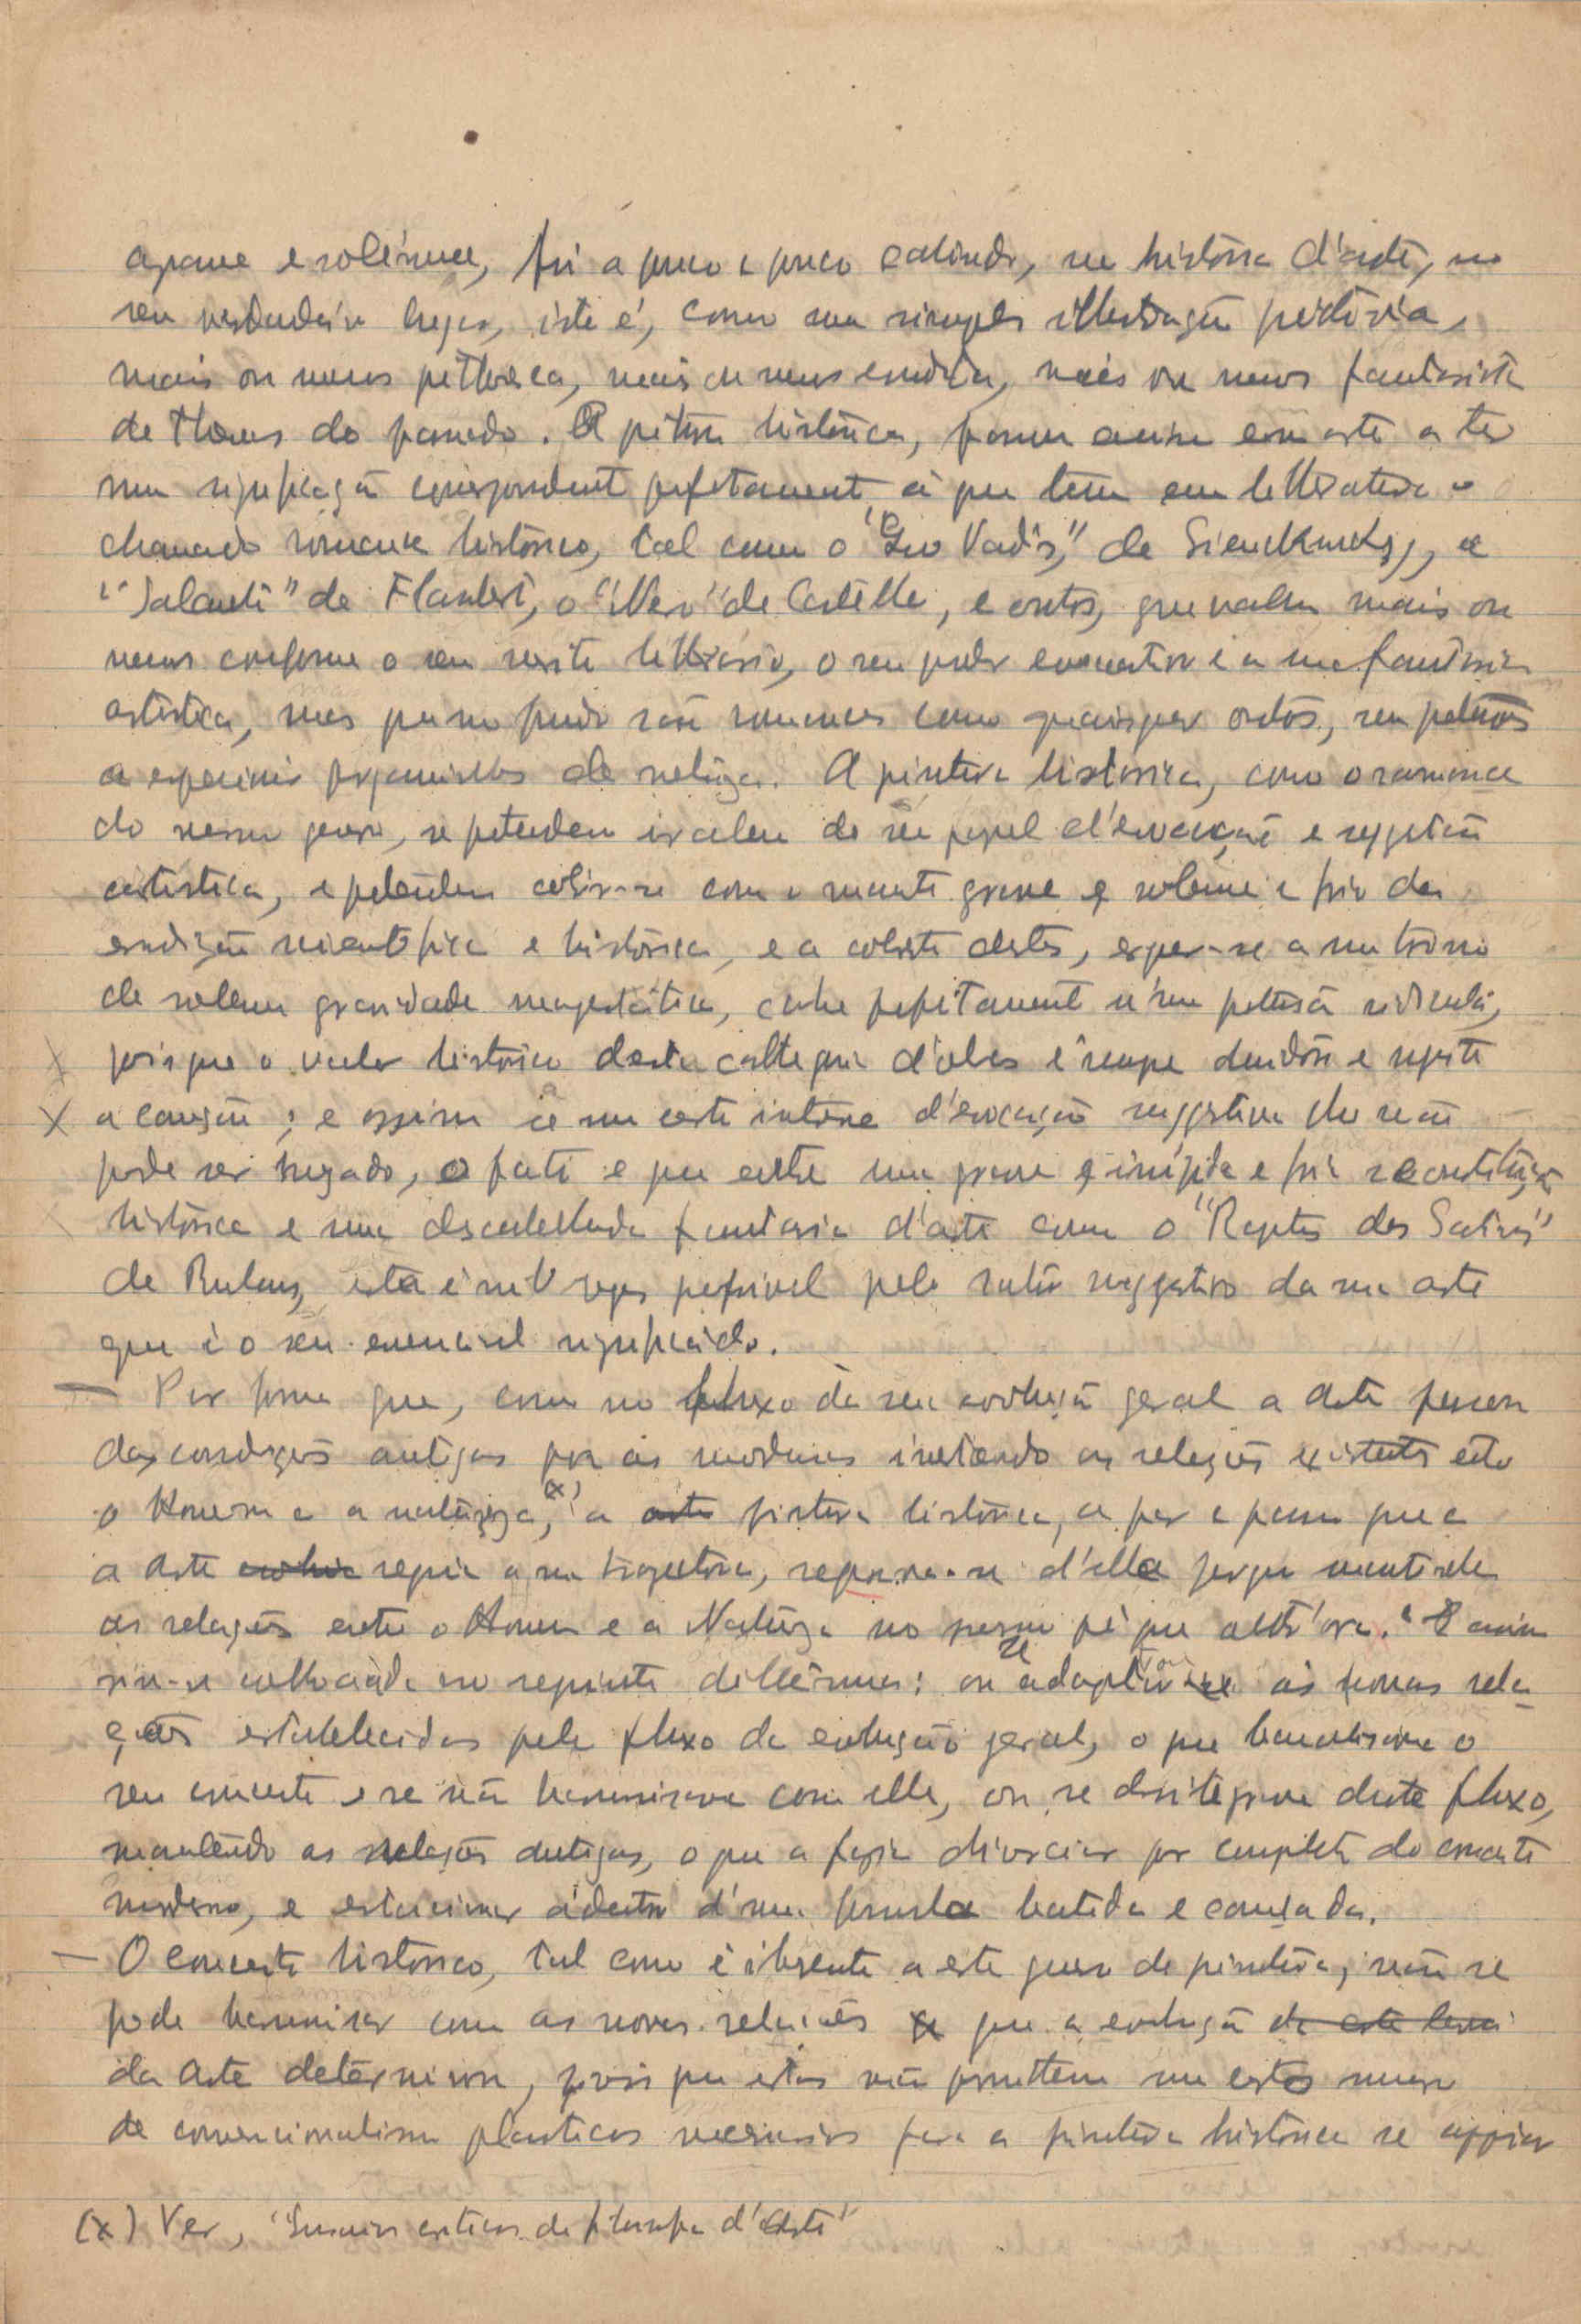 a grave e solémne, foi a pouco e pouco cahindo, na história d'arte, no
seu verdadeiro lugar, isto é, como uma simples illustração pictória,
mais ou menos pitthoresca, mais ou menos erudita, mais ou menos fantasista
de themas do passado. A pintura histórica, passou assim em arte a ter
uma significação correspondente perfeitamente á que tem em litteratura o
chamado romance histórico, tal como o "Quo Vadis," de a
"Salambô" de Flaubert, o "Nero" de e outros, que valem mais ou
menos conforme o seu merito litterario, o seu poder evocativo e a sua fantasia
artistica, mas que no fundo são romances como quaisquer outros, sem
a de A pintura historica, como o romance
do mesmo genero, se pretendem ir alem do seu papel d'evocação e suggestão
artistica, e pretendem cobrir-se com o manto grave e solemne e frio da
erudição scientifica e histórica, e a coberto destes, erguer-se a um throno
de solemne gravidade magestática, cahe perfeitamente n'um ridicula,
pois que o valor historico desta cathegoria d'obras é sempre duvidoso e sujeito
a caução; e assim se um certo interesse d'evocação suggestiva lhe não
pode ser negado, o facto é que entre uma grave e insipida e fria reconstituição
histórica e uma descabellada fantasia d'arte como o "Rapto das Sabinas"
de Rubens, esta é mil vezes preferivel pelo valor suggestivo da sua arte
que é o seu essencial significado.
— Por forma que, como no fluxo da sua evolução geral a Arte passou
das condições antigas para as modernas invertendo as relações existentes entre
o Homem e a natureza, (x) a arte pintura histórica, a par e passo que
a Arte seguia a sua trajectoria, separava-se d'ella porque mantinha
as relações entre o Homem e a Natureza no mesmo pé que outr'ora. E assim
viu-se collocada no seguinte dillêmma: ou se adaptava ás novas rela-
ções establecidas pelo fluxo da evolução geral, o que banalisava o
seu conceito e se não harmonisava com elle, ou se desintegrava deste fluxo,
mantendo as relações antigas, o que a fazia divorciar por completo do conceito
moderno, e estacionar ádentro d'uma formula batida e cansada.
— O conceito historico, tal como é inherente a este genero de pintura, não se
pode harmonisar com as novas relações que a evolução de esta
da Arte determinou, pois que estas não permittem um certo numero
de convencionalismos plasticos necessarios para a pintura histórica se appoiar
(x) Ver, "Ensaios criticos de filosofia d'Arte"